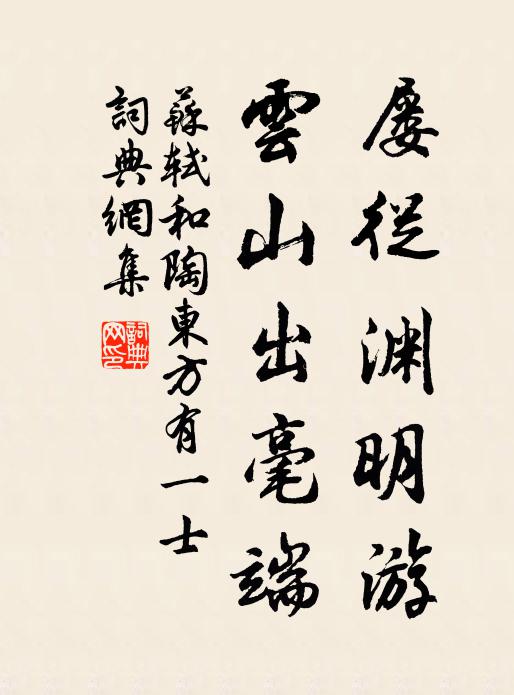 屡從淵明游
雲山出毫端
蘇軾和陶東方有一士
詞典網集
詞典网印